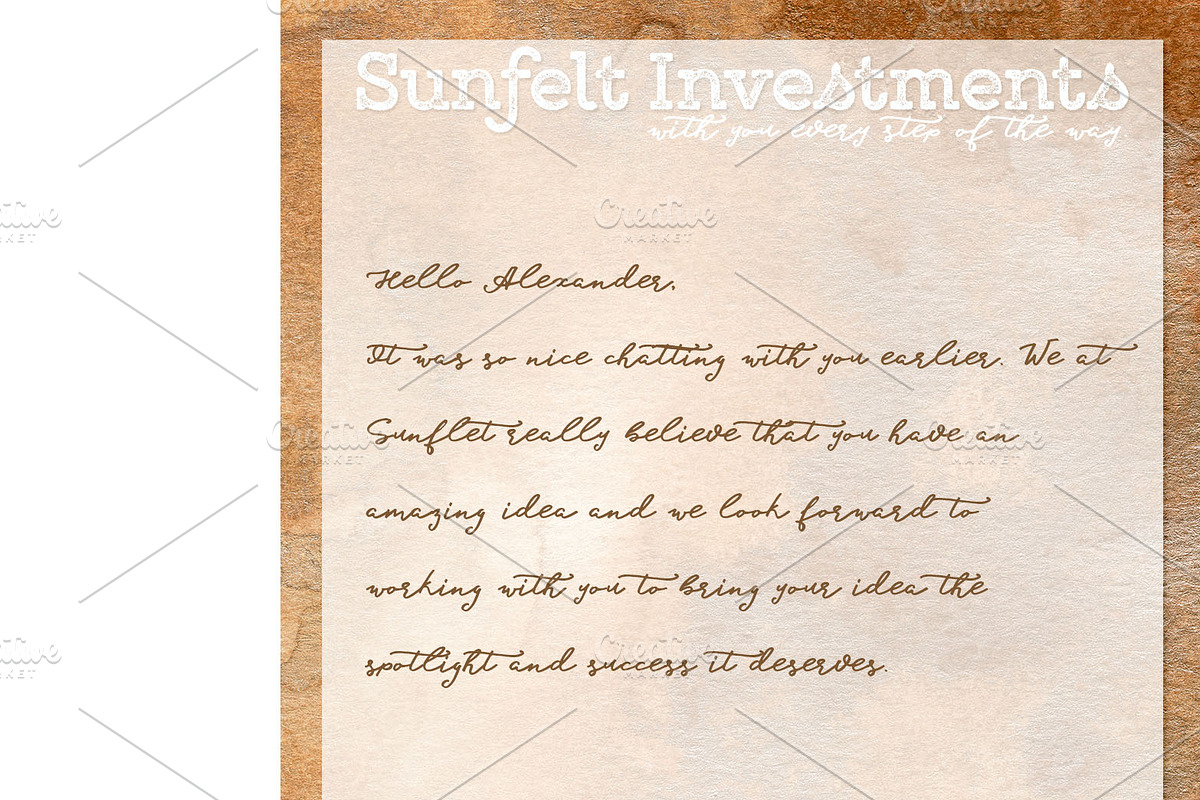 Sunfelt Investments
with you every step of the way
Hello Alexander,
It was so nice chatting with you earlier. We at
Sunflet really believe that you have an
amazing idea and we look forward to
working with you to bring your idea the
spotlight and success it deserves.
Creative
MARKET